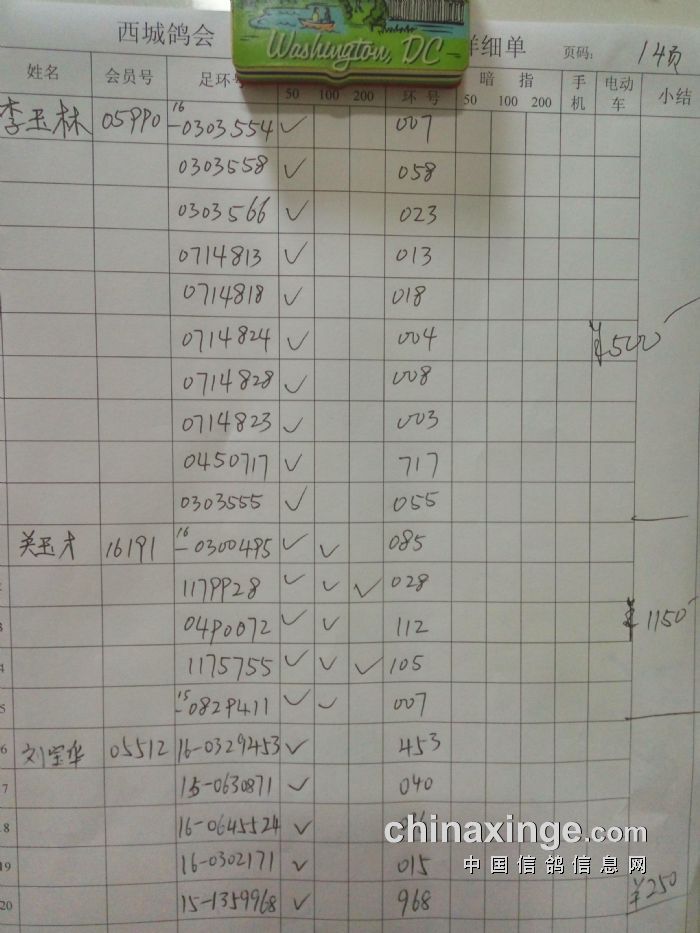 西城鸽会 Washington, DC 详细单 页码: 14页
姓名 会员号 足环号 50 100 200 环号 暗指 50 100 200 手机 电动车 小结
李玉林 05990 16-0303554 ✓ 007
0303558 ✓ 058
0303566 ✓ 023
0714813 ✓ 013
0714818 ✓ 018
0714824 ✓ 004 ¥500
0714828 ✓ 008
0714823 ✓ 003
0450717 ✓ 717
0303555 ✓ 055
关玉才 16191 16-0300495 ✓ ✓ 085
1179928 ✓ ✓ ✓ 028
3 0490072 ✓ ✓ 112 ¥1150
4 1175755 ✓ ✓ ✓ 105
5 15-0829411 ✓ ✓ 007
6 刘宝华 05512 16-0329453 ✓ 453
7 15-0630871 ✓ 040
8 16-0645524 ✓
chinaxinge.com
19 16-0302171 ✓ 015
中国信鸽信息网
20 15-1359968 ✓ 968 ¥250